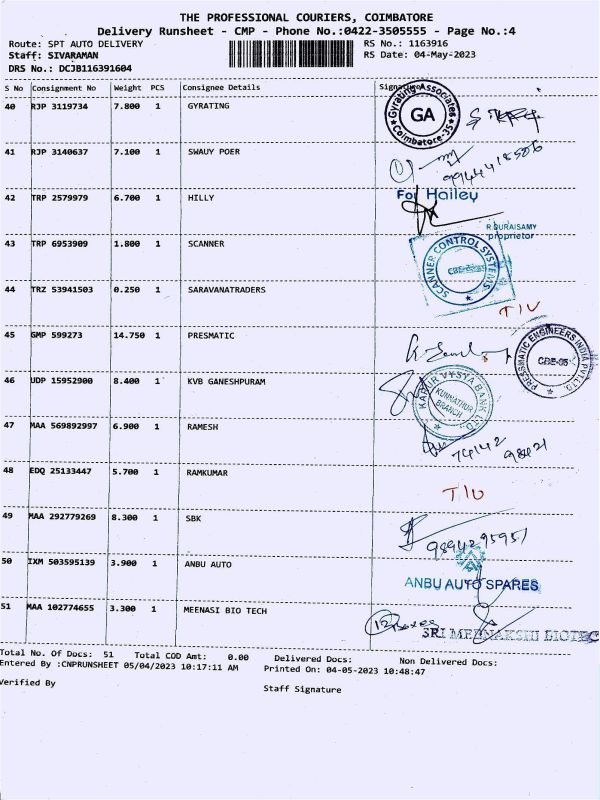 THE PROFESSIONAL COURIERS, COIMBATORE
Delivery Runsheet - CMP - Phone No.:0422-3505555 - Page No.:4
Route: SPT AUTO DELIVERY RS No.: 1163916
Staff: SIVARAMAN RS Date: 04-May-2023
DRS No.: DCJB116391604
S No Consignment No Weight PCS Consignee Details Signature
40 RJP 3119734 7.800 1 GYRATING
Gyrating Associates
GA
Coimbatore-35
41 RJP 3140637 7.100 1 SWAUY POER
42 TRP 2579979 6.700 1 HILLY
For Hailey
R DURAISAMY
proprietor
43 TRP 6953909 1.800 1 SCANNER
SCANNER CONTROL SYSTEMS
44 TRZ 53941503 0.250 1 SARAVANATRADERS
T/U
45 GMP 599273 14.750 1 PRESMATIC
PRESSMATIC ENGINEERS INDIA PVT LTD.
CBE-35
46 UDP 15952900 8.400 1 KVB GANESHPURAM
KARUR VYSYA BANK LTD.
KUNNATHUR
BRANCH
47 MAA 569892997 6.900 1 RAMESH
74142 98421
48 EDQ 25133447 5.700 1 RAMKUMAR
T/U
49 MAA 292779269 8.300 1 SBK
9894295951
50 IXM 503595139 3.900 1 ANBU AUTO
ANBU AUTO SPARES
51 MAA 102774655 3.300 1 MEENASI BIO TECH
12 Boxes
SRI MEENAKSHI BIOTEC
Total No. Of Docs: 51 Total COD Amt: 0.00 Delivered Docs: Non Delivered Docs:
Entered By :CNPRUNSHEET 05/04/2023 10:17:11 AM Printed On: 04-05-2023 10:48:47
Verified By
Staff Signature